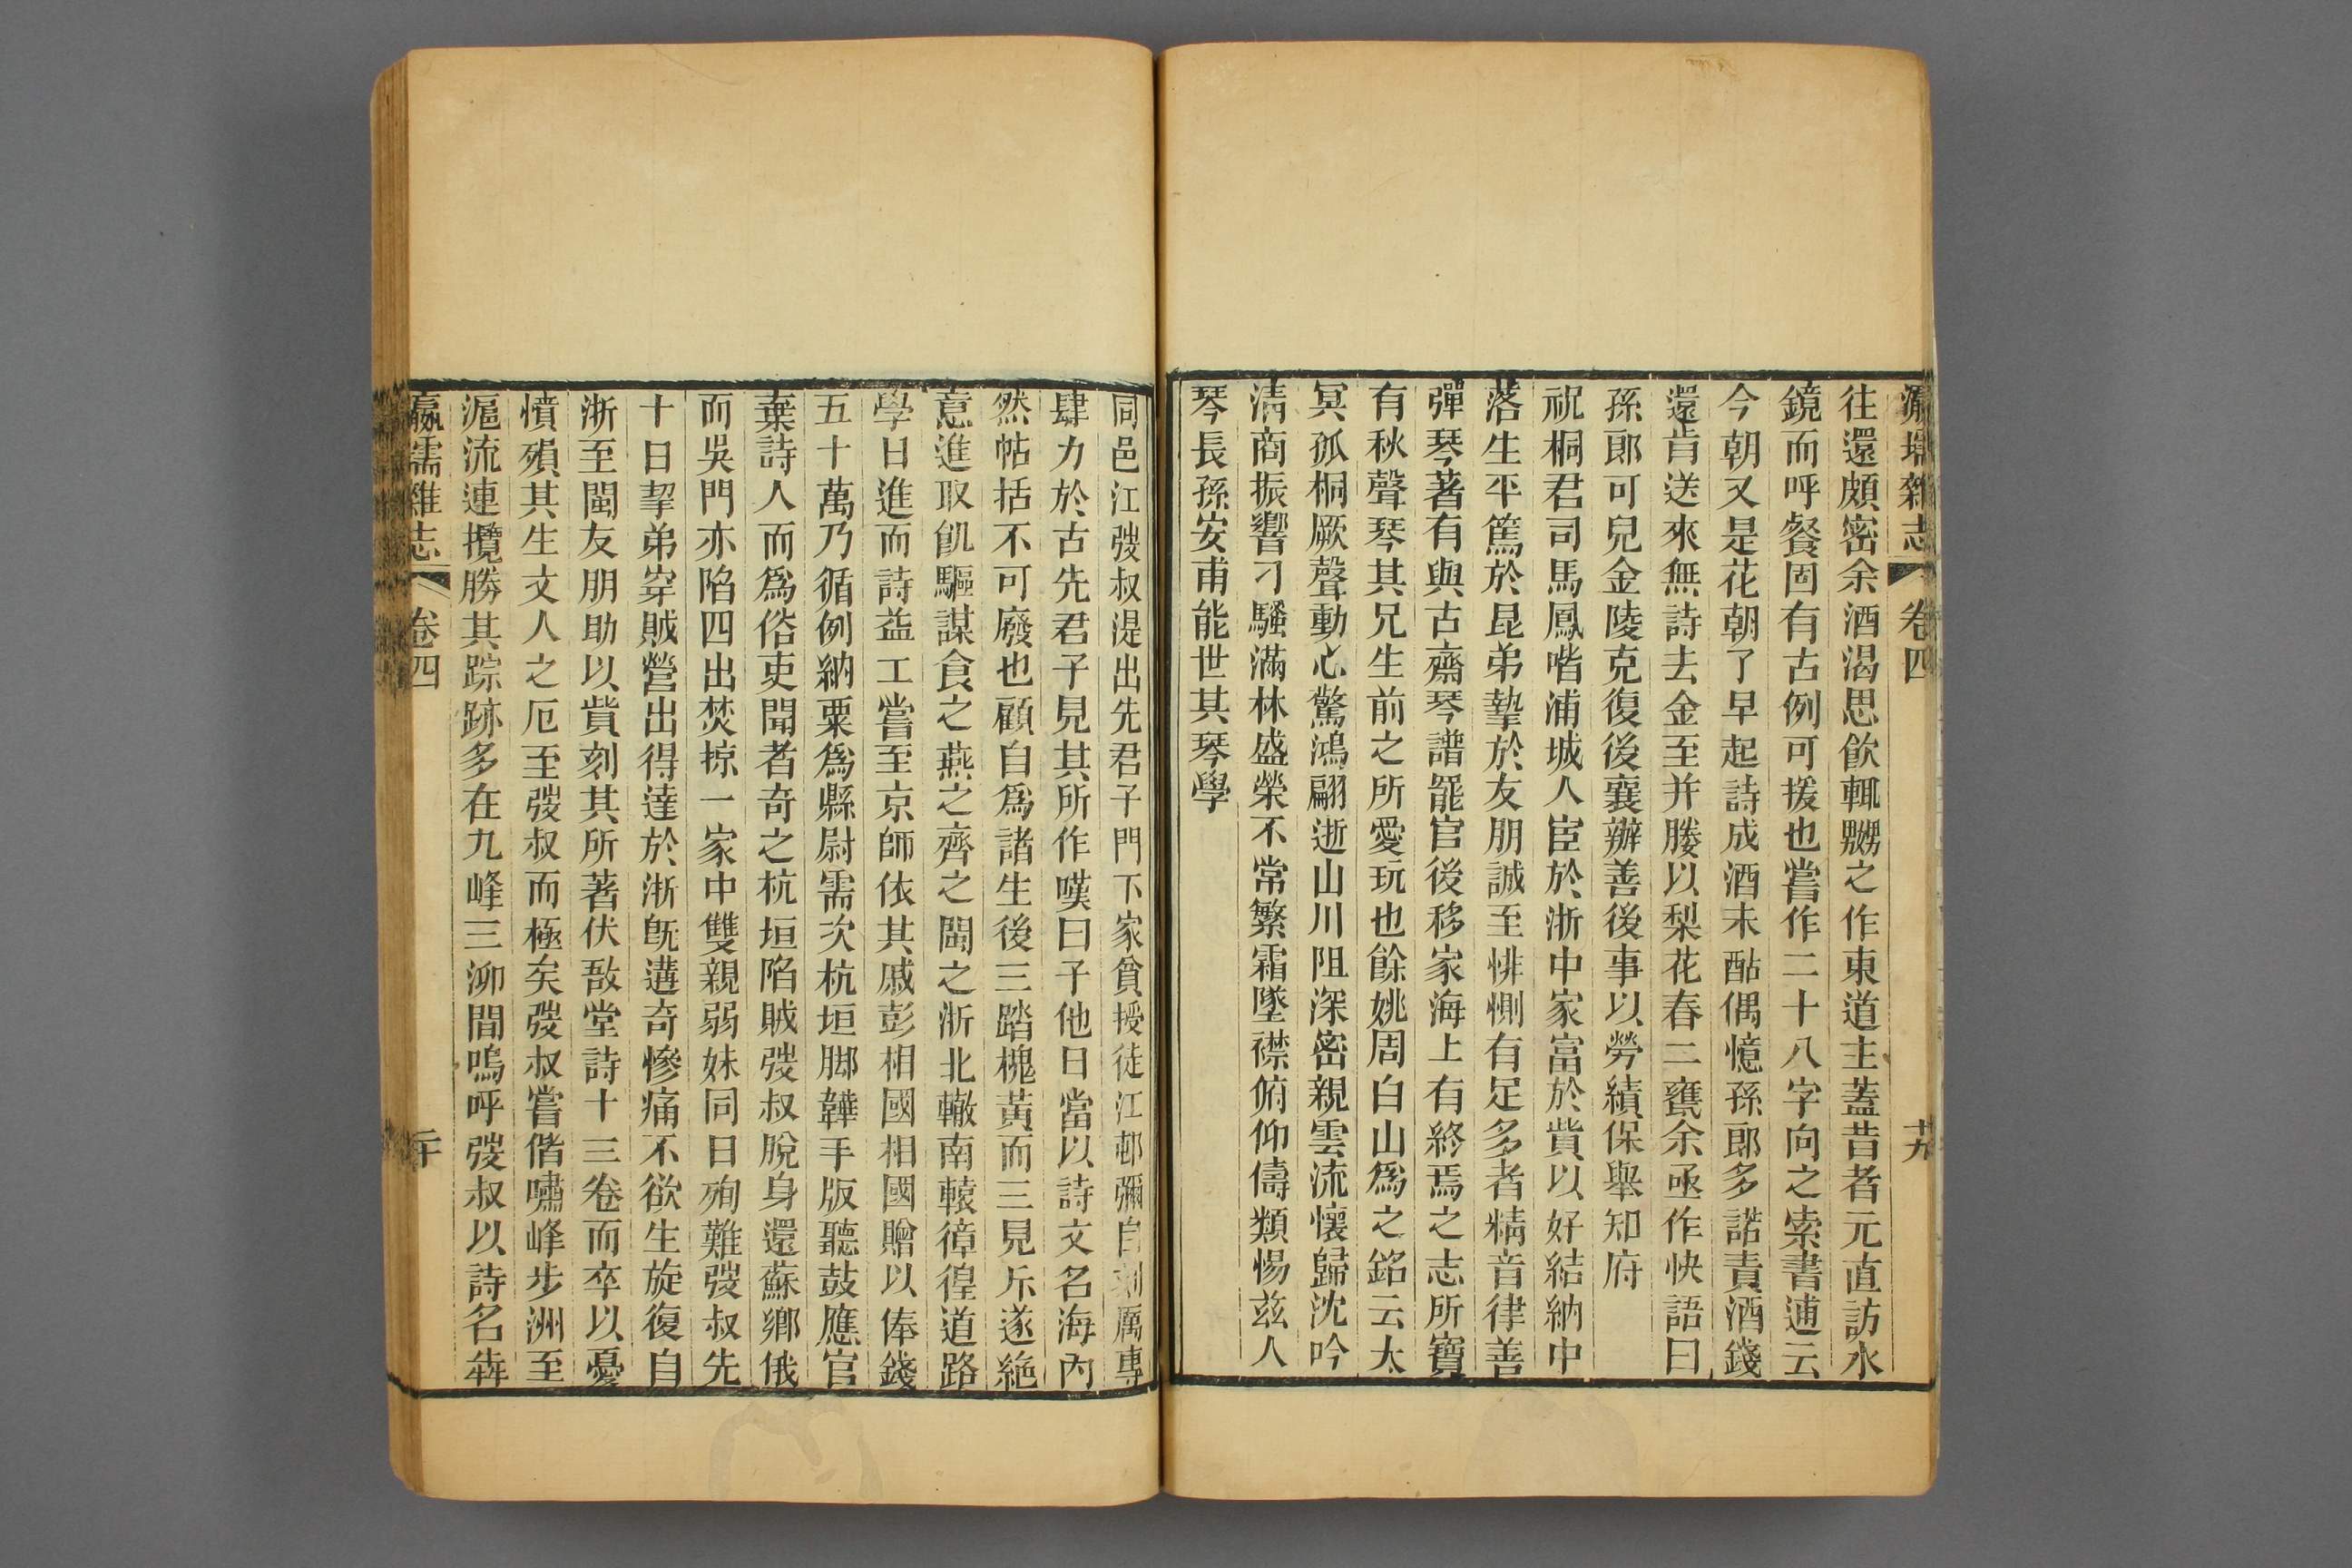 瀛壖雜志 卷四 十九
往還頗密余酒渴思飲輒嬲之作東道主蓋昔者元直訪水
鏡而呼餐固有古例可援也嘗作二十八字向之索書逋云
今朝又是花朝了早起詩成酒未酤偶憶孫郎多諾責酒錢
還肯送來無詩去金至并媵以梨花春二甕余亟作快語曰
孫郎可兒金陵克復後襄辦善後事以勞績保舉知府
祝桐君司馬鳳喈浦城人宦於浙中家富於貲以好結納中
落生平篤於昆弟摯於友朋誠至悱惻有足多者精音律善
彈琴著有與古齋琴譜罷官後移家海上有終焉之志所寶
有秋聲琴其兄生前之所愛玩也餘姚周白山為之銘云太
冥孤桐厥聲動心驚鴻翩逝山川阻深密親雲流懷歸沈吟
清商振響刁騷滿林盛榮不常繁霜墜襟俯仰儔類惕茲人
琴長孫安甫能世其琴學
同邑江弢叔湜出先君子門下家貧授徒江邨彌自刻厲專
肆力於古先君子見其所作嘆曰子他日當以詩文名海內
然帖括不可廢也顧自為諸生後三踏槐黃而三見斥遂絕
意進取飢驅謀食之燕之齊之閩之浙北轍南轅徬徨道路
學日進而詩益工嘗至京師依其戚彭相國相國贈以俸錢
五十萬乃循例納粟為縣尉需次杭垣腳韡手版聽鼓應官
棄詩人而為俗吏聞者奇之杭垣陷賊弢叔脫身還蘇鄉俄
而吳門亦陷四出焚掠一家中雙親弱妹同日殉難弢叔先
十日挈弟穿賊營出得達於浙旣遘奇慘痛不欲生旋復自
浙至閩友朋助以貲刻其所著伏敔堂詩十三卷而卒以憂
憤殞其生文人之厄至弢叔而極矣弢叔嘗偕嘯峰步洲至
滬流連攬勝其踪跡多在九峰三泖間嗚呼弢叔以詩名犇
瀛壖雜志 卷四 二十